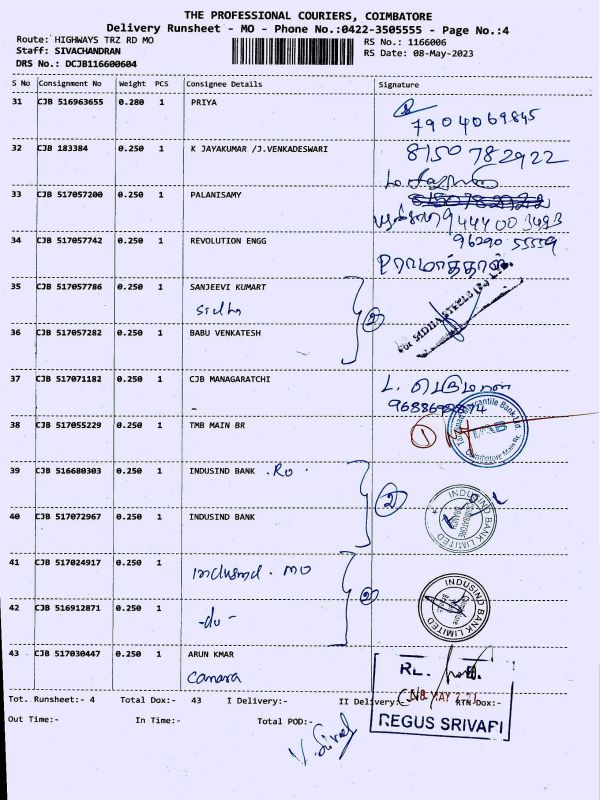 THE PROFESSIONAL COURIERS, COIMBATORE
Delivery Runsheet - MO - Phone No.:0422-3505555 - Page No.:4
Route: HIGHWAYS TRZ RD MO RS No.: 1166006
Staff: SIVACHANDRAN RS Date: 08-May-2023
DRS No.: DCJB116600604
S No Consignment No Weight PCS Consignee Details Signature
31 CJB 516963655 0.280 1 PRIYA
7904069845
32 CJB 183384 0.250 1 K JAYAKUMAR /J.VENKADESWARI 8150 782922
33 CJB 517057200 0.250 1 PALANISAMY
34 CJB 517057742 0.250 1 REVOLUTION ENGG 96290 55559
ராமாத்தாள்
35 CJB 517057786 0.250 1 SANJEEVI KUMART
Sidha
2
For SIDHA STEELS
36 CJB 517057282 0.250 1 BABU VENKATESH
37 CJB 517071182 0.250 1 CJB MANAGARATCHI
-
38 CJB 517055229 0.250 1 TMB MAIN BR 1
Mercantile Bank Ltd.
Coimbatore Main Br.
39 CJB 516680303 0.250 1 INDUSIND BANK . RO .
2
INDUSIND BANK LIMITED
40 CJB 517072967 0.250 1 INDUSIND BANK
41 CJB 517024917 0.250 1 Indusind . MO
2
INDUSIND BANK LIMITED
42 CJB 516912871 0.250 1 -du-
43 CJB 517030447 0.250 1 ARUN KMAR
Canara
Tot. Runsheet:- 4 Total Dox:- 43 I Delivery:- II Delivery:- RTN Dox:-
REGUS SRIVARI
Out Time:- In Time:- Total POD:-